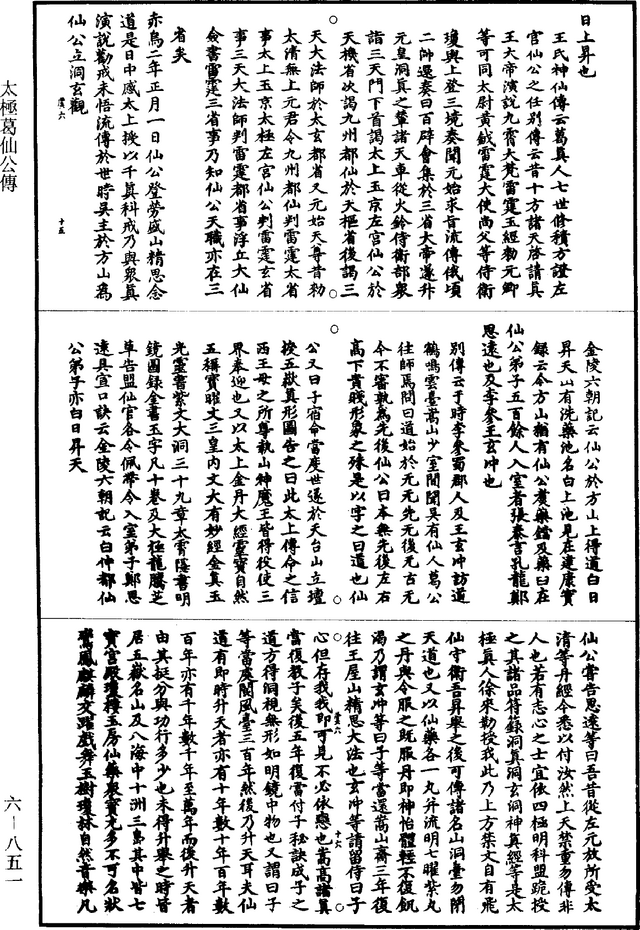 太極葛仙公傳
六－八五一
日上昇也
王氏神仙傳云葛真人七世修積方證左
宮仙公之任別傳云昔十方諸天啓請真
王大帝演說九霄大梵雷霆玉經勅元卿
等可同太尉黃鉞雷霆大使尚父等侍衛
瓊輿上登三境奏聞元始求旨流傳俄頃
二帥還奏曰百辟會集於三省大帝遂升
元皇洞真之輦諸天車從火鈴侍衛部衆
詣三天門下首謁太上玉京左宮仙公於
天機省次謁九州都仙於天樞省後謁三
天大法師於太玄都省又元始天尊昔勑
太清無上元君令九州都仙判雷霆太省
事太上玉京太極左宮仙公判雷霆玄省
事三天大法師判雷霆都省事浮丘大仙
僉書雷霆三省事乃知仙公天職亦在三
省矣
赤烏二年正月一日仙公登勞盛山精思念
道是日中感太上授以千真科戒乃與衆真
演說勸戒未悟流傳於世時吳主於方山爲
仙公立洞玄觀
虞六
十五
金陵六朝記云仙公於方山上得道白日
昇天山有洗藥池名白上池見在建康實
錄云今方山猶有仙公煑藥鐺及藥臼在
仙公弟子五百餘人入室者張泰言孔龍鄭
思遠也及李參王玄冲也
別傳云于時李參蜀郡人及王玄冲訪道
鶴鳴雲臺嵩山少室聞閣具有仙人葛公
往師焉問曰道始於元元先元後元古元
今不審孰爲先後仙公曰本無先後左右
高下貴賤形象之殊是以字之曰道也仙
公又曰子宿命當度世遂於天台山立壇
授五嶽真形圖告之曰此太上傳命之信
西王母之所尊執山神魔王皆得役使三
界奉迎也又以太上金丹大經靈寶自然
五稱寶曜文三皇內文大有妙經金真玉
光靈書紫文大洞三十九章太霄隱書明
鏡圖錄金書玉字凡十卷及大極龍騰芝
草告盟仙官各令佩帶令入室弟子鄭思
遠具宣口訣云金陵六朝記云白仲都仙
公弟子亦白日昇天
仙公嘗告思遠等曰吾昔從左元放所受太
清等丹經今悉以付汝然上天禁重勿傳非
人也若有志心之士宜依四極明科盟跪授
之其諸品符籙洞真洞玄洞神真經等是太
極真人徐來勒授我此乃上方禁文自有飛
仙守衛吾昇舉之後可傳諸名山洞臺勿閉
天道也又以仙藥各一丸并流明七曜紫丸
之丹與令服之既服丹即神怡體輕不復飢
渴乃謂玄冲等曰子等當還嵩山齋三年復
往王屋山精思大法也玄冲等請留侍曰子
心但存我我即可見不必依戀也嵩高諸真
當復教子矣後五年復當付子秘訣成子之
道方得洞視無形如明鏡中物也又謂曰子
等當度閬風臺三百年然後乃升天耳夫仙
道有即時升天者亦有十年數十年百年數
百年亦有千年數千年至萬年而後升天者
由其挺分與功行多少也未得升舉之時皆
居五嶽名山及八海中十洲三島其中皆七
寶宮殿瓊樓玉房仙藥衆寶尤多不可名狀
鸞鳳麒麟交蹈戲舞玉樹瓊林自然音樂凡
虞六
十六